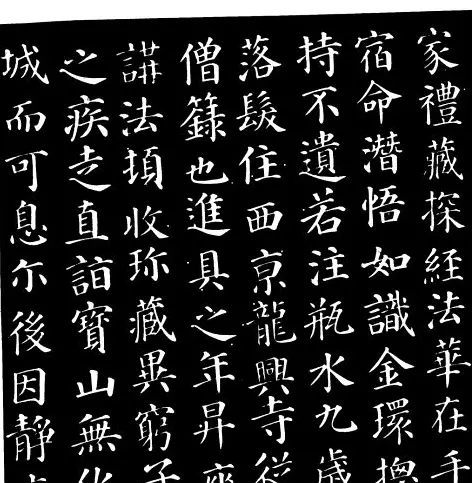 家禮藏探經法華在手
宿命潛悟如識金環揔
持不遺若注瓶水九歲
落髮住西亰龍興寺從
僧籙也進具之年昇座
講法頓收珎藏異窮子
之疾走直詣寶山無化
城而可息尒後因靜